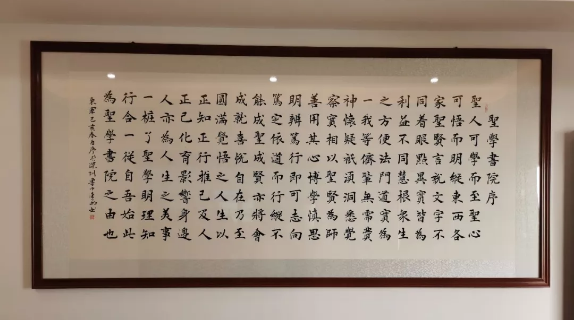 聖學書院序
聖人可學而至聖心
可悟而明縱東西各
家聖賢言說文字不
同着眼點異實皆為
利益不同慧根眾生
之方便法門道實為
一我等儕輩無需費
神懷疑祇須洞悉覺
察實相以聖賢為師
善用其心博學慎思
明辨篤行即可志向
篤定依道而行縱不
能成聖成賢亦將會
成就喜悅自在乃至
圓滿覺悟之人生以
正知正行雖己及人
正己化育影響身邊
人亦為人生之美事
一樁了聖學明理知
行合一從自吾始此
為聖學書院之由也
己亥春月序於深圳